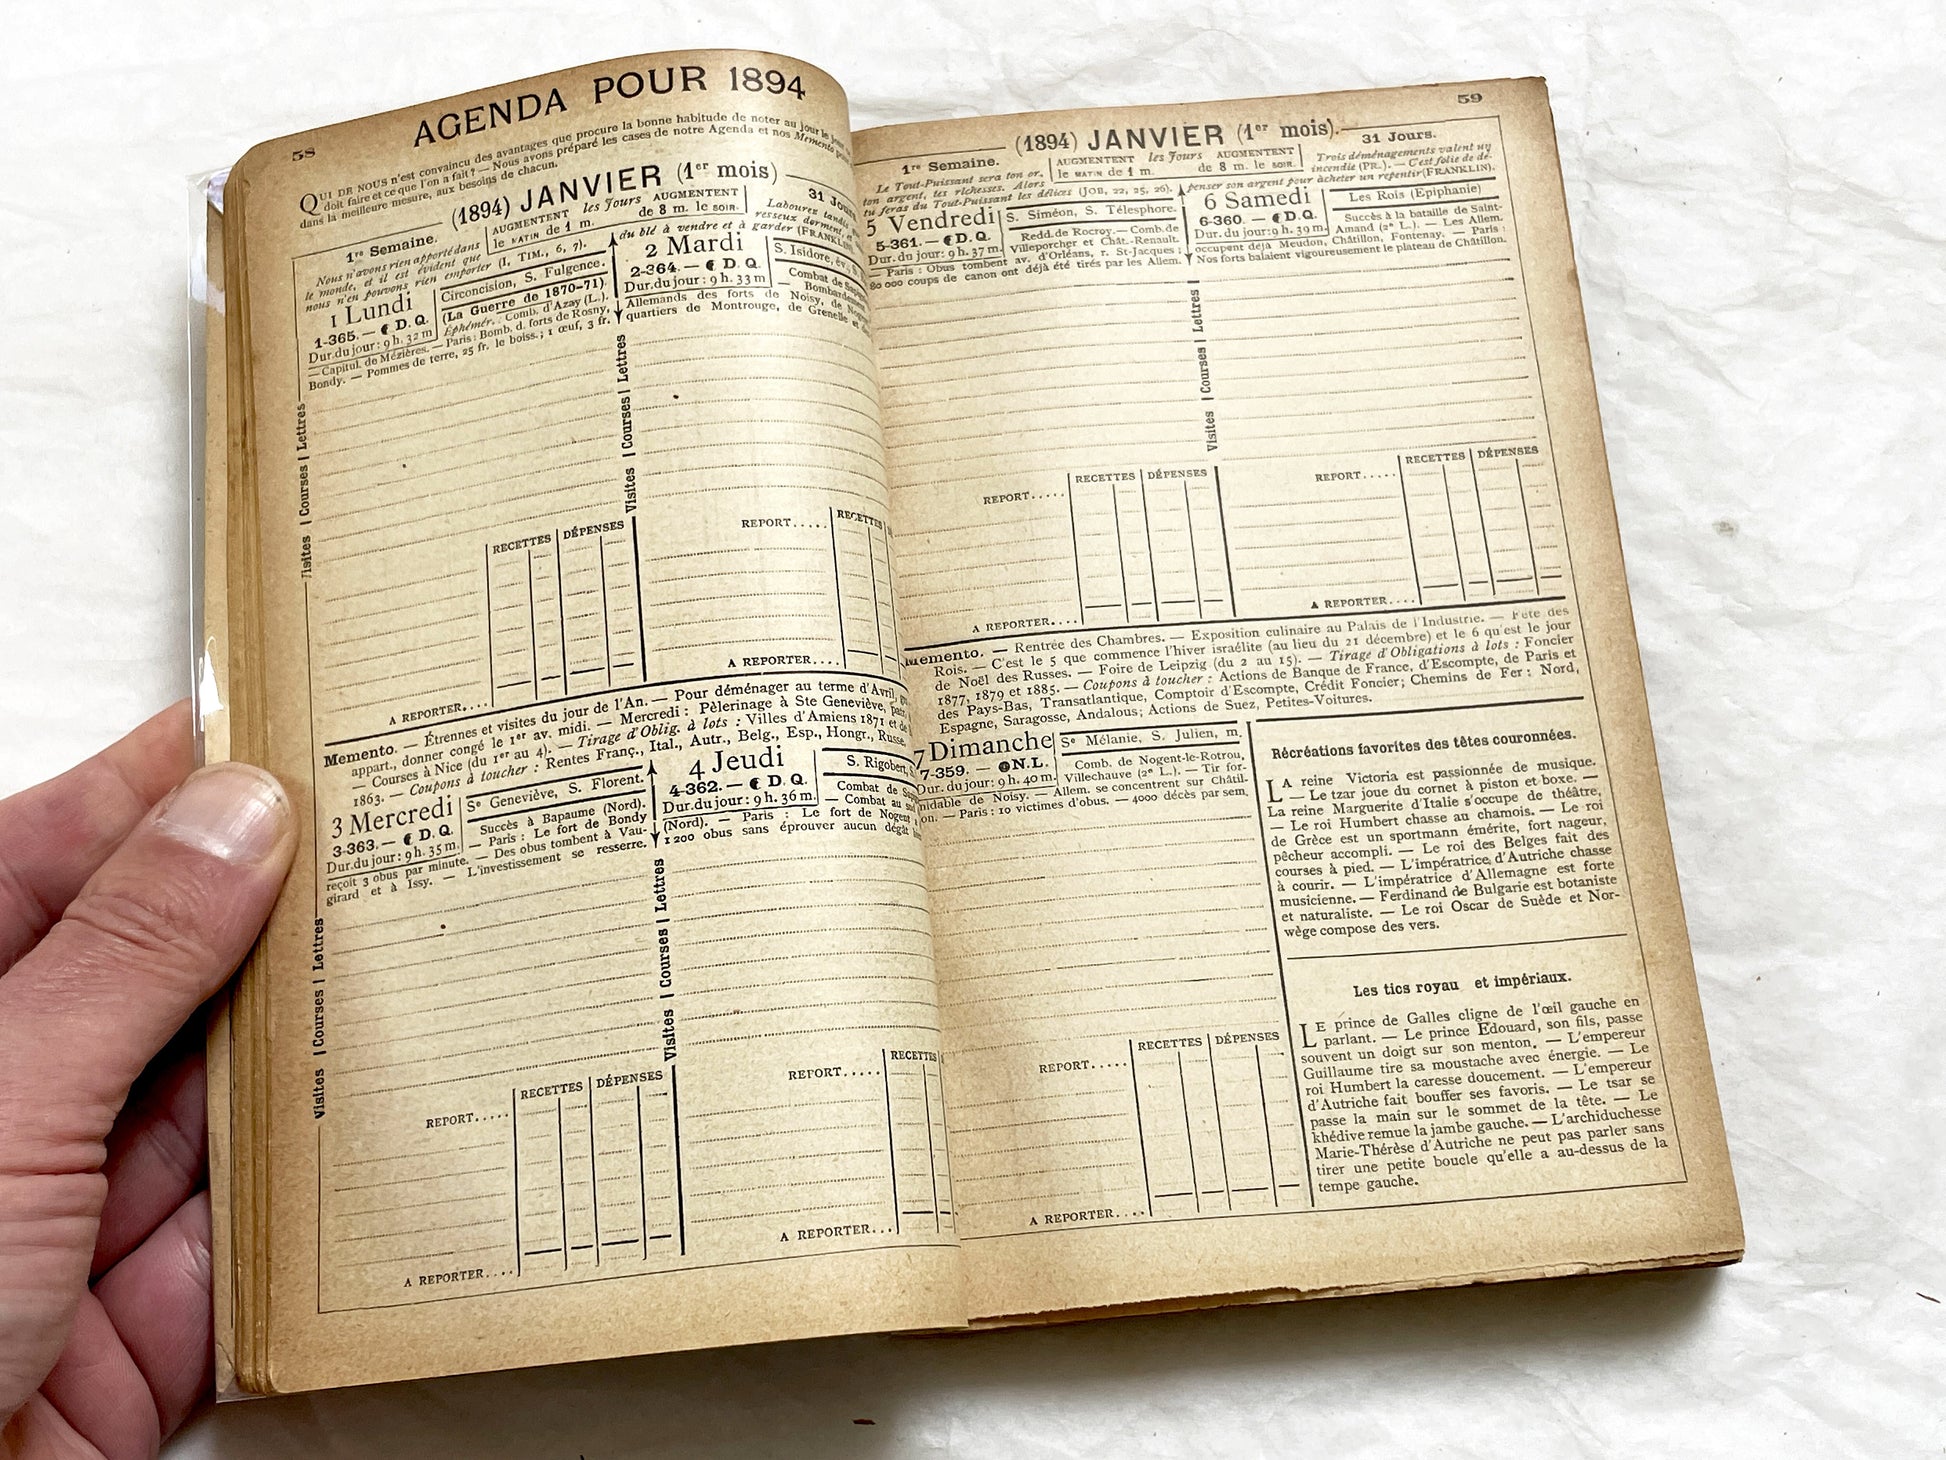 58
AGENDA POUR 1894
QUI DE NOUS n'est convaincu des avantages que procure la bonne habitude de noter au jour le
doit faire et ce que l'on a fait? — Nous avons préparé les cases de notre Agenda et nos Memento
dans la meilleure mesure, aux besoins de chacun.
(1894) JANVIER (1er mois)
1re Semaine.
AUGMENTENT les Jours AUGMENTENT
le MATIN de 1 m. de 8 m. le SOIR.
31 Jours
Nous n'avons rien apporté dans
le monde, et il est évident que
nous n'en pouvons rien emporter (I, TIM., 6, 7).
Labourez tandis
resseux dorment,
du blé à vendre et à garder (FRANKLIN
1 Lundi
1-365. — D. Q.
Dur. du jour: 9 h. 32 m
Circoncision, S. Fulgence.
(La Guerre de 1870-71).
Éphémér.: Comb. d'Azay (L.).
— Capitul. de Mézières. — Paris: Bomb. d. forts de Rosny,
Bondy. — Pommes de terre, 25 fr. le boiss.; 1 œuf, 3 fr.
Visites | Courses | Lettres
RECETTES DÉPENSES
A REPORTER....
2 Mardi
2-364. — D. Q.
Dur. du jour: 9 h. 33 m
S. Isidore, év.
Combat de
Allemands des forts de Noisy, de
quartiers de Montrouge, de Grenelle et
Visites | Courses | Lettres
REPORT..... RECETTES
A REPORTER....
Memento. — Étrennes et visites du jour de l'An. — Pour déménager au terme d'Avril,
appart., donner congé le 1er av. midi. — Mercredi: Pèlerinage à Ste Geneviève,
— Courses à Nice (du 1er au 4). — Tirage d'Oblig. à lots: Villes d'Amiens 1871 et
1863. — Coupons à toucher: Rentes Franç., Ital., Autr., Belg., Esp., Hongr., Russe.
3 Mercredi
3-363. — D. Q.
Dur. du jour: 9 h. 35 m.
Se Geneviève, S. Florent.
Succès à Bapaume (Nord).
— Paris: Le fort de Bondy
reçoit 3 obus par minute. — Des obus tombent à Vau-
girard et à Issy. — L'investissement se resserre.
Visites | Courses | Lettres
REPORT..... RECETTES DÉPENSES
A REPORTER....
4 Jeudi
4-362. — D. Q.
Dur. du jour: 9 h. 36 m.
S. Rigobert,
Combat de
— Combat au
(Nord). — Paris: Le fort de Nogent
1 200 obus sans éprouver aucun dégât
Visites | Courses | Lettres
REPORT..... RECETTES
A REPORTER...
59
(1894) JANVIER (1er mois).
1re Semaine.
AUGMENTENT les Jours AUGMENTENT
le MATIN de 1 m. de 8 m. le SOIR.
31 Jours.
Le Tout-Puissant sera ton or,
ton argent, tes richesses. Alors
tu feras du Tout-Puissant les délices (JOB, 22, 25, 26).
Trois déménagements valent un
incendie (PR.). — C'est folie de dé-
penser son argent pour acheter un repentir (FRANKLIN).
5 Vendredi
5-361. — D. Q.
Dur. du jour: 9 h. 37 m.
S. Siméon, S. Télesphore.
Redd. de Rocroy. — Comb. de
Villeporcher et Chât.-Renault.
— Paris: Obus tombent av. d'Orléans, r. St-Jacques;
80 000 coups de canon ont déjà été tirés par les Allem.
REPORT..... RECETTES DÉPENSES
A REPORTER....
6 Samedi
6-360. — D. Q.
Dur. du jour: 9 h. 39 m.
Les Rois (Epiphanie)
Succès à la bataille de Saint-
Amand (2e L.). — Les Allem.
occupent déjà Meudon, Châtillon, Fontenay. — Paris:
Nos forts balaient vigoureusement le plateau de Châtillon.
Visites | Courses | Lettres
REPORT..... RECETTES DÉPENSES
A REPORTER....
Memento. — Rentrée des Chambres. — Exposition culinaire au Palais de l'Industrie. — Fête des
Rois. — C'est le 5 que commence l'hiver israélite (au lieu du 21 décembre) et le 6 qu'est le jour
de Noël des Russes. — Foire de Leipzig (du 2 au 15). — Tirage d'Obligations à lots: Foncier
1877, 1879 et 1885. — Coupons à toucher: Actions de Banque de France, d'Escompte, de Paris et
des Pays-Bas, Transatlantique, Comptoir d'Escompte, Crédit Foncier; Chemins de Fer: Nord,
Espagne, Saragosse, Andalous; Actions de Suez, Petites-Voitures.
7 Dimanche
7-359. — N. L.
Dur. du jour: 9 h. 40 m.
Se Mélanie, S. Julien, m.
Comb. de Nogent-le-Rotrou,
Villechauve (2e L.). — Tir for-
midable de Noisy. — Allem. se concentrent sur Châtil-
on. — Paris: 10 victimes d'obus. — 4000 décès par sem.
REPORT..... RECETTES DÉPENSES
A REPORTER....
Récréations favorites des têtes couronnées.
LA reine Victoria est passionnée de musique.
— Le tzar joue du cornet à piston et boxe. —
La reine Marguerite d'Italie s'occupe de théâtre,
— Le roi Humbert chasse au chamois. — Le roi
de Grèce est un sportmann émérite, fort nageur,
pêcheur accompli. — Le roi des Belges fait des
courses à pied. — L'impératrice d'Autriche chasse
à courir. — L'impératrice d'Allemagne est forte
musicienne. — Ferdinand de Bulgarie est botaniste
et naturaliste. — Le roi Oscar de Suède et Nor-
wège compose des vers.
Les tics royau et impériaux.
LE prince de Galles cligne de l'œil gauche en
parlant. — Le prince Edouard, son fils, passe
souvent un doigt sur son menton. — L'empereur
Guillaume tire sa moustache avec énergie. — Le
roi Humbert la caresse doucement. — L'empereur
d'Autriche fait bouffer ses favoris. — Le tsar se
passe la main sur le sommet de la tête. — Le
khédive remue la jambe gauche. — L'archiduchesse
Marie-Thérèse d'Autriche ne peut pas parler sans
tirer une petite boucle qu'elle a au-dessus de la
tempe gauche.